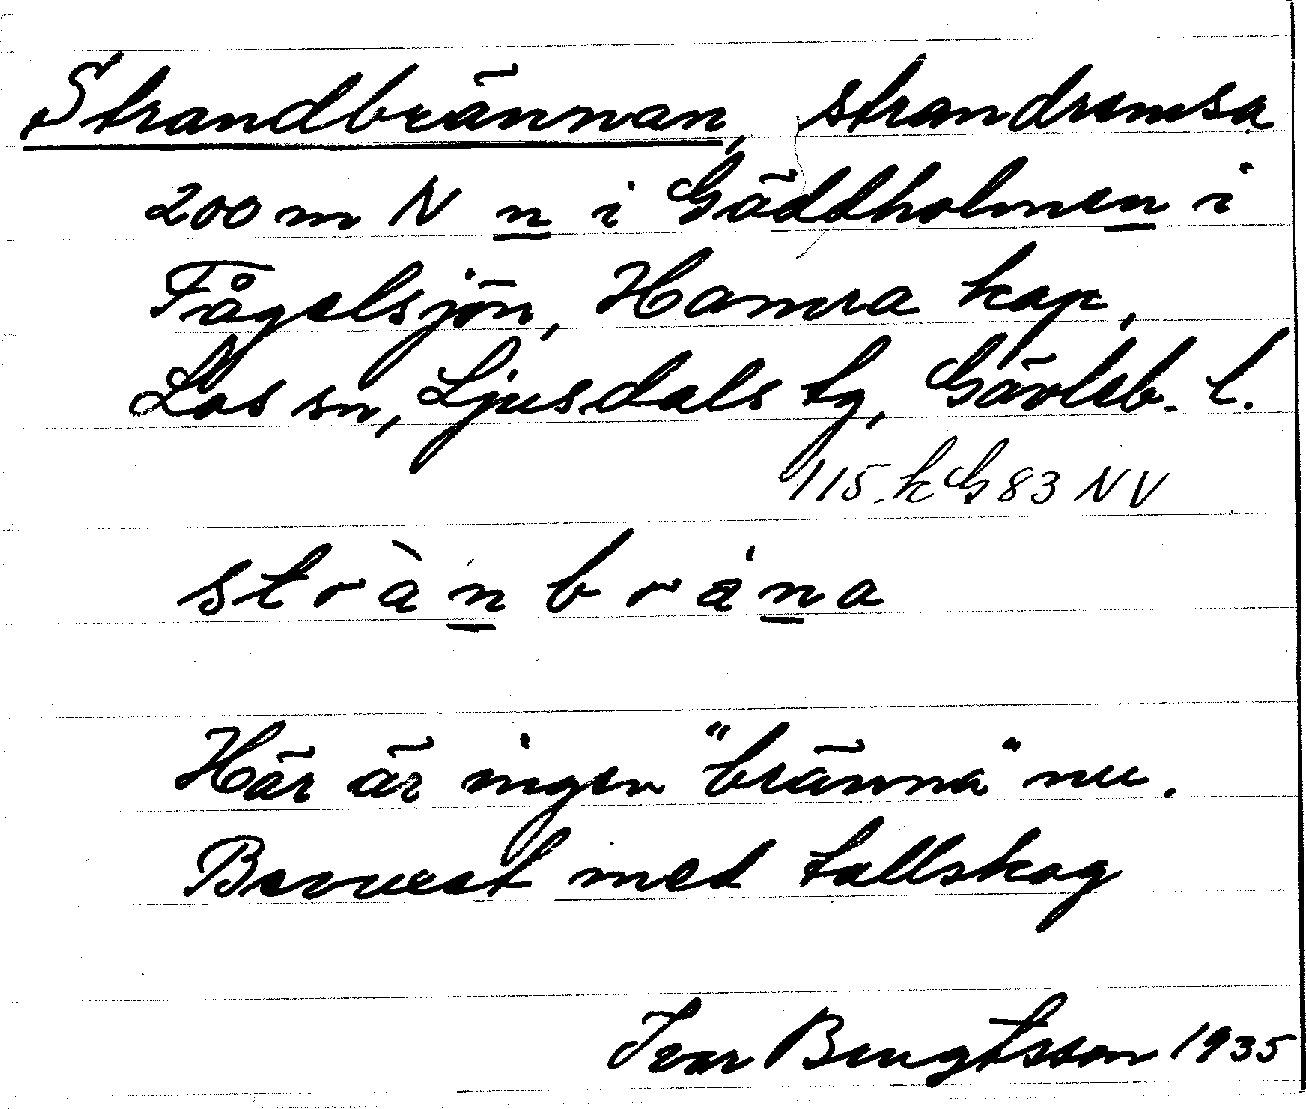 Strandbrännan, strandremsa
200 m N n i Gäddholmen i
Fågelsjön, Hamra kap,
Los sn, Ljusdals tg, Gävleb. l.
115. kG 83 NV
strànbràna
Här är ingen "bränna" nu.
Bevuxet med tallskog
Ivar Bengtsson 1935